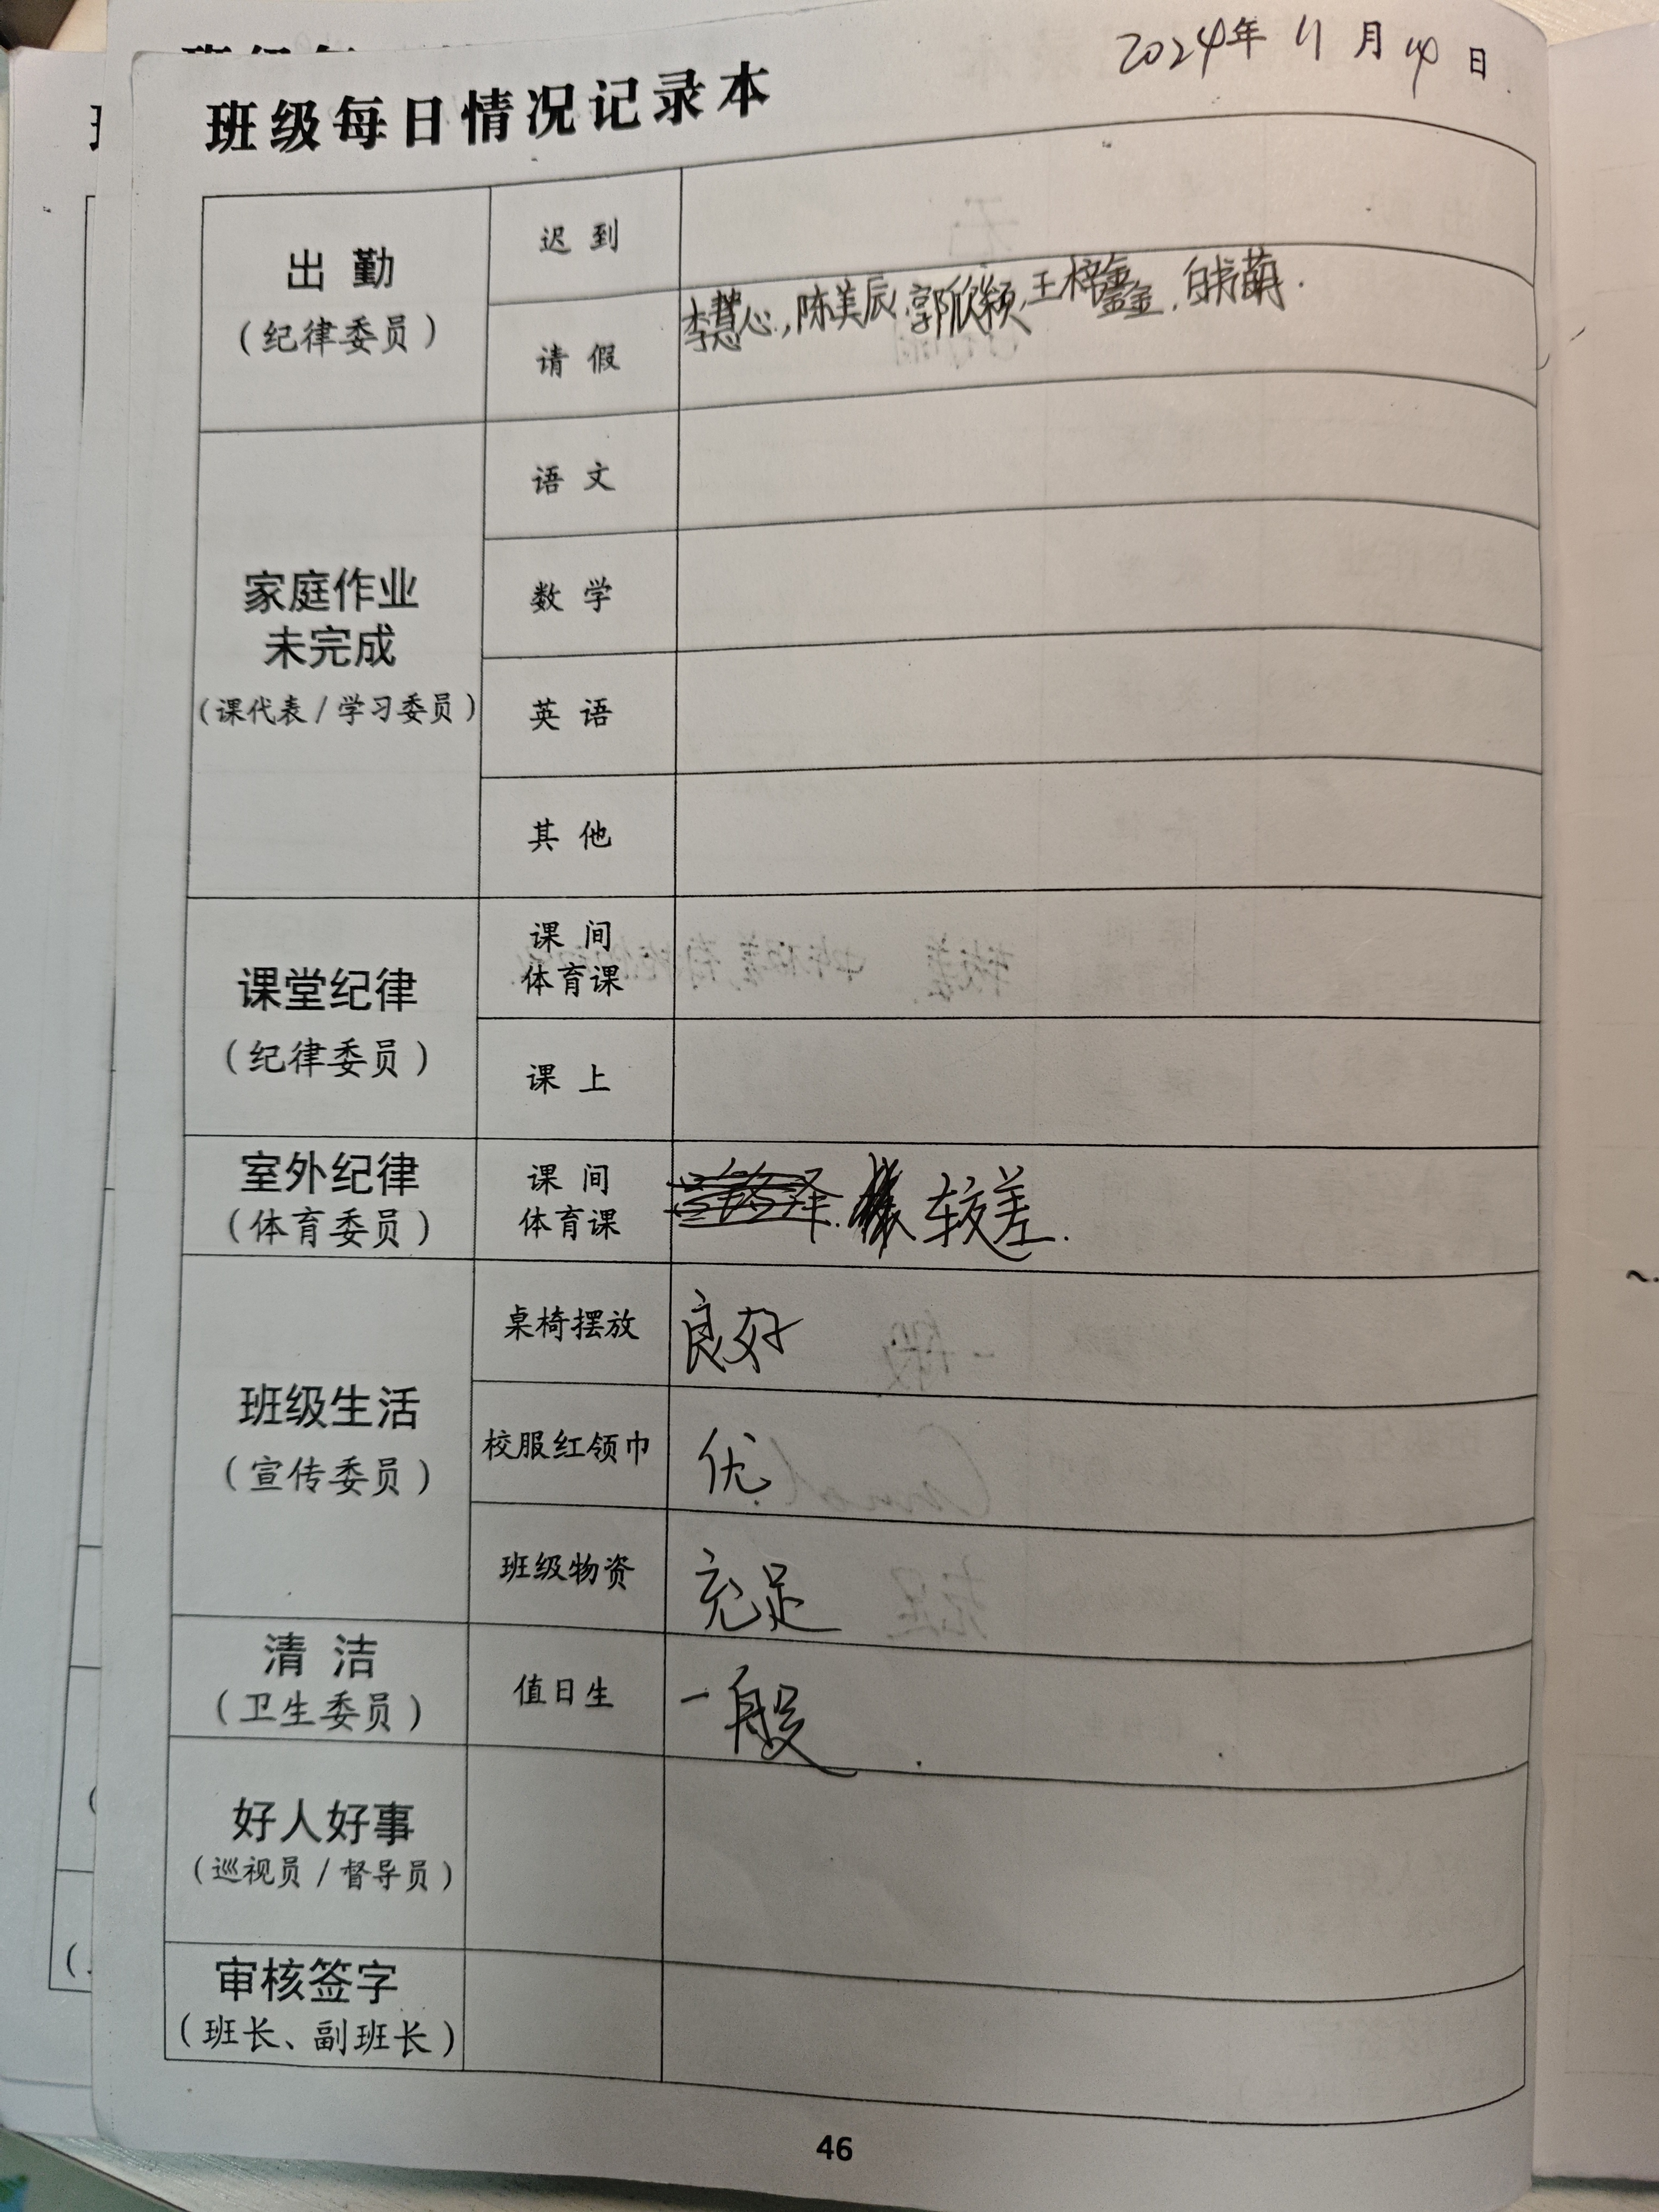 2024年 11月 日
班级每日情况记录本
出勤
（纪律委员）
迟到
请假
李慧心，陈美辰，郭欣颖，王梓鑫，白书萌.
家庭作业
未完成
（课代表/学习委员）
语文
数学
英语
其他
课堂纪律
（纪律委员）
课间
体育课
课上
室外纪律
（体育委员）
课间
体育课
较差.
班级生活
（宣传委员）
桌椅摆放
良好
校服红领巾
优.
班级物资
充足
清洁
（卫生委员）
值日生
一般
好人好事
（巡视员/督导员）
审核签字
（班长、副班长）
46